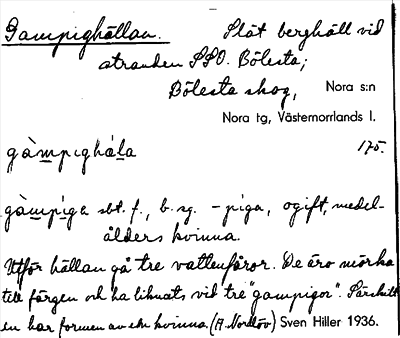 Gampighällan. Slät berghäll vid
stranden SSO. Bölesta;
Bölesta skog, Nora s:n
Nora tg, Västernorrlands l.
gàmpighá̀la 175.
gàmpiga sbt. f., b. sg. -piga, ogift, medel-
ålders kvinna.
Utför hällan gå tre vattenfåror. De äro mörka
till färgen och ha liknats vid tre "gampigor". Särskilt
en har formen av en kvinna. (A. Nordlöv) Sven Hiller 1936.